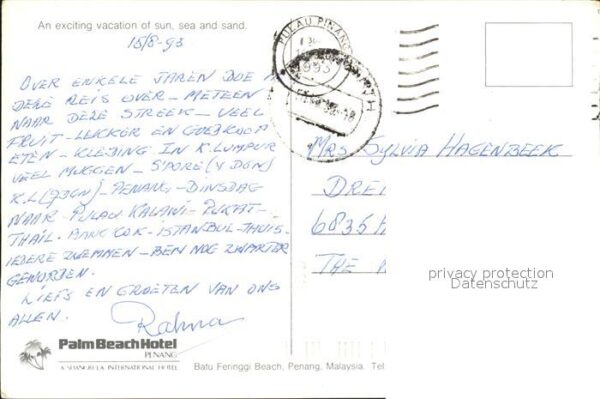 An exciting vacation of sun, sea and sand.
15/8-93
OVER ENKELE JAREN DOE
DEZE REIS OVER - METEEN
NAAR DEZE STREEK - VEEL
FRUIT - LEKKER EN GOEDKOOP
ETEN - KLEDING IN K.LUMPUR
VEEL MUGGEN - S'PORE (4 DGN)
K.L. DGN) - PENANG - DINSDAG
NAAR PULAU - PUKAT -
THAIL. BANGKOK - ISTANBUL - THUIS.
IEDERE ZWEMMEN - BEN NOG ZWARTER
GEWORDEN.
LIEFS EN GROETEN VAN ONS
ALLEN.
Ratna
Palm Beach Hotel
PENANG
A SHANGRI-LA INTERNATIONAL HOTEL
PULAU PINANG
1993
MRS SYLVIA HAGENBEEK
DREI
6835
THE
privacy protection
Datenschutz
Batu Feringgi Beach, Penang, Malaysia. Tel